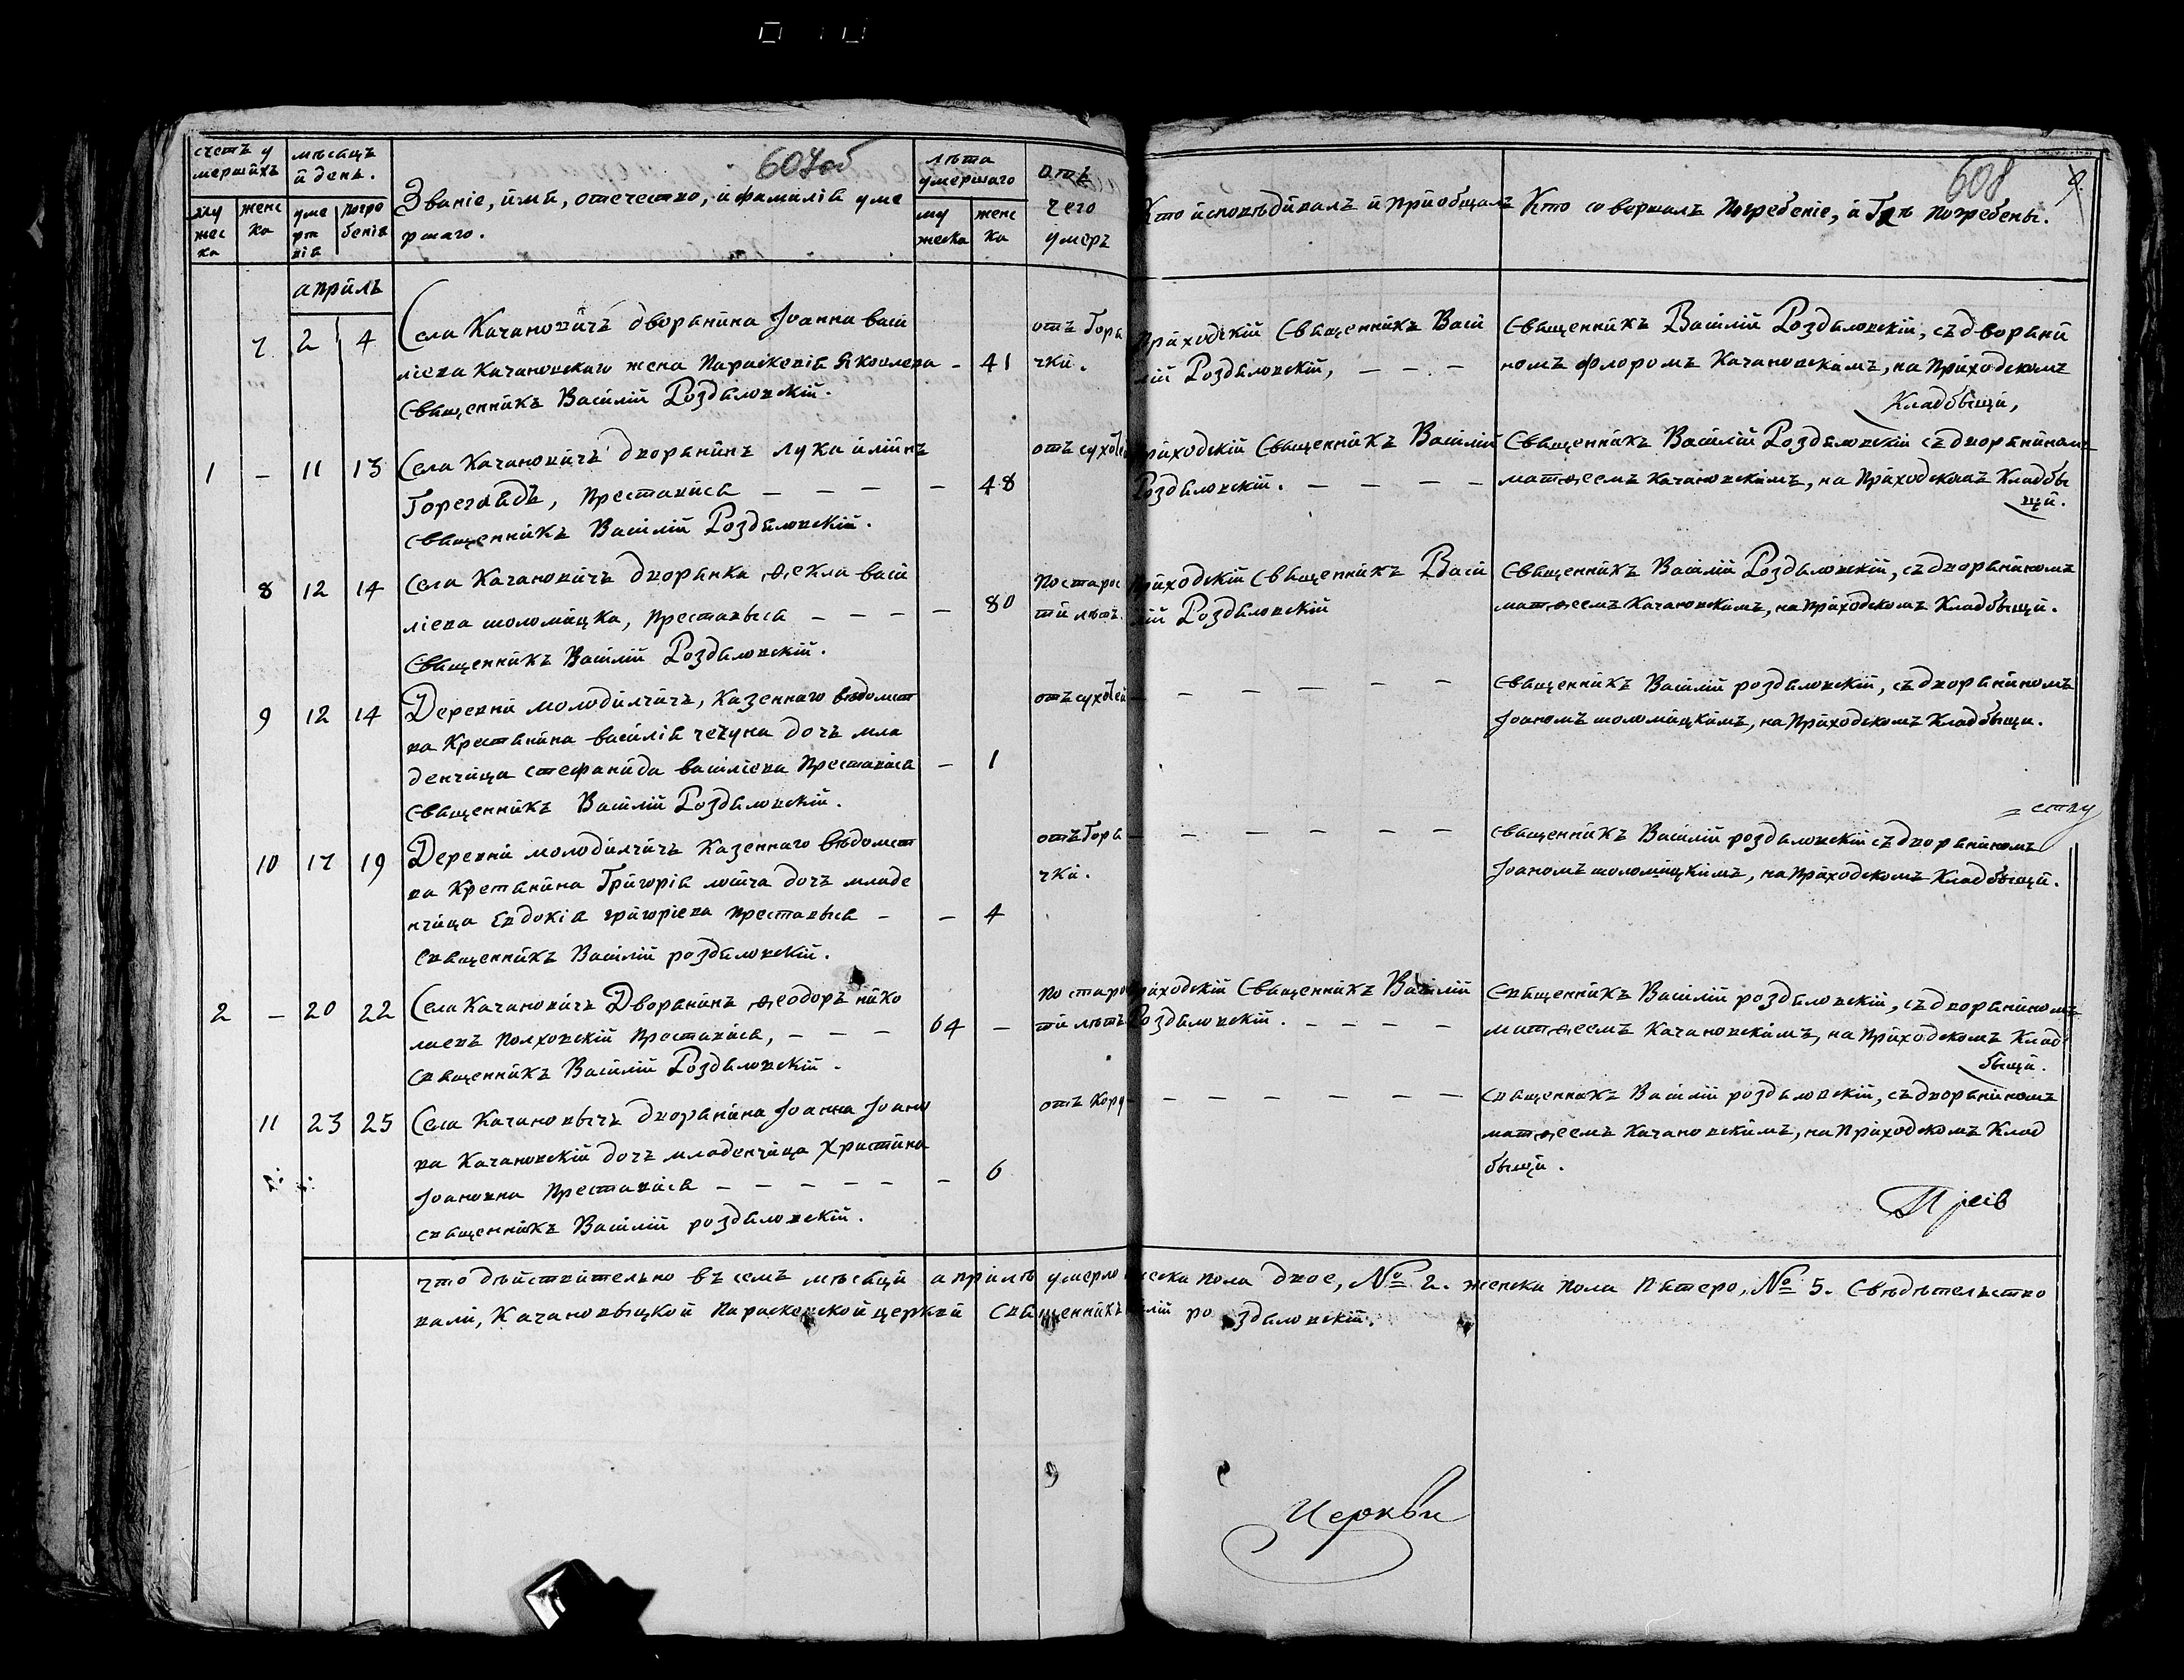 607об
608
счетъ у
мершихъ
мѣсяцъ
й день.
Званіе, ймя, отечество, й фамилія уме
ршаго.
лѣта
умершаго
отъ
чего
умеръ
му
жес
ка
женс
ка
уме
рт
вія
погре
бенія
му
жеска
женс
ка
Кто йсповѣдивалъ й прйобщалъ
Кто совершалъ погребеніе, й Гдѣ погребены.
апрйль
7 2 4
Села Качановйчъ дворянина Іоанна васй
ліева Качановскаго жена Параскевія Яковлева - 41
священнйкъ Васйлій Роздяловскій.
отъ Горя
чкй.
Прйходскій Священнйкъ Васй
лій Роздяловскій, — — —
Священнйкъ Васйлій Роздяловскій, съ дворянй
номъ флоромъ Качановскймъ, на Прйходскомъ
Кладбыщй,
1 - 11 13
Села Качановйчъ дворянйнъ лука йлйинъ
Гореглядъ, преставйся — — — — — 48
священнйкъ Васйлій Роздяловскій.
отъ сухотъ
Прйходскій Священнйкъ Васйлій
Роздяловскій. — — — —
Священнйкъ Васйлій Роздяловскій съ дворянйномъ
матѳеемъ Качановскймъ, на Прйходскомъ Кладбы
щй.
8 12 14
Села Качановйчъ дворянка ѳекла васй
ліева шоломйцка, преставься — — — 80
Священнйкъ Васйлій Роздяловскій.
по старос
тй лѣтъ.
Прйходскій Священнйкъ Васй
лій Роздяловскій
Священнйкъ Васйлій Роздяловскій, съ дворянйномъ
матѳеемъ Качановскймъ, на Прйходскомъ Кладбыщй.
9 12 14
Деревнй молодйлчйчъ, Казеннаго вѣдомст
ва Крестянйна васйлія чечуна дочъ мла
денчйца стефанйда васйліева Преставйся — 1
священнйкъ Васйлій Роздяловскій.
отъ сухотъ
— — — — — —
Священнйкъ Васйлій роздяловскій, съ дворянйномъ
Іоаномъ шоломйцкймъ, на Прйходскомъ Кладбыщй.
= ству
10 17 19
Деревнй молодйлчйчъ Казеннаго вѣдомст
ва Крестянйна Грйгорія дочъ младе
нчйца Евдокія грйгоріева преставься — — 4
Священнйкъ Васйлій роздяловскій.
отъ Горя
чкй.
— — — — — —
священнйкъ Васйлій роздяловскій съ дворянйномъ
Іоаномъ шоломйцкймъ, на Прйходскомъ Кладбыщй.
2 - 20 22
Села Качановйчъ Дворянйнъ ѳеодоръ нйко
лаевъ Полховскій преставйся, — — — 64 —
Священнйкъ Васйлій Роздяловскій.
по старос
тй лѣтъ
Прйходскій Священнйкъ Васйлій
Роздяловскій. — — — —
Священнйкъ Васйлій роздяловскій, съ дворянйномъ
матѳеемъ Качановскймъ, на Прйходскомъ Клад
быщй.
11 23 25
Села Качановычъ дворянйна Іоанна Іоано
ва Качановскій дочъ младенчйца Христйна
Іоановна Преставйся — — — — — — 6
священнйкъ Васйлій роздяловскій.
отъ Корч
— — — — — —
священнйкъ Васйлій роздяловскій, съ дворянйномъ
матѳеемъ Качановскймъ, на Прйходскомъ Клад
быщй.
что дѣйствйтельно въ семъ мѣсяцй апрйлѣ умерло жеска пола двое, № 2. женска пола пятеро, № 5. Свѣдѣтельство
валй, Качановыцкой Параскевской церквй священнйкъ роздяловскій.
Церкви